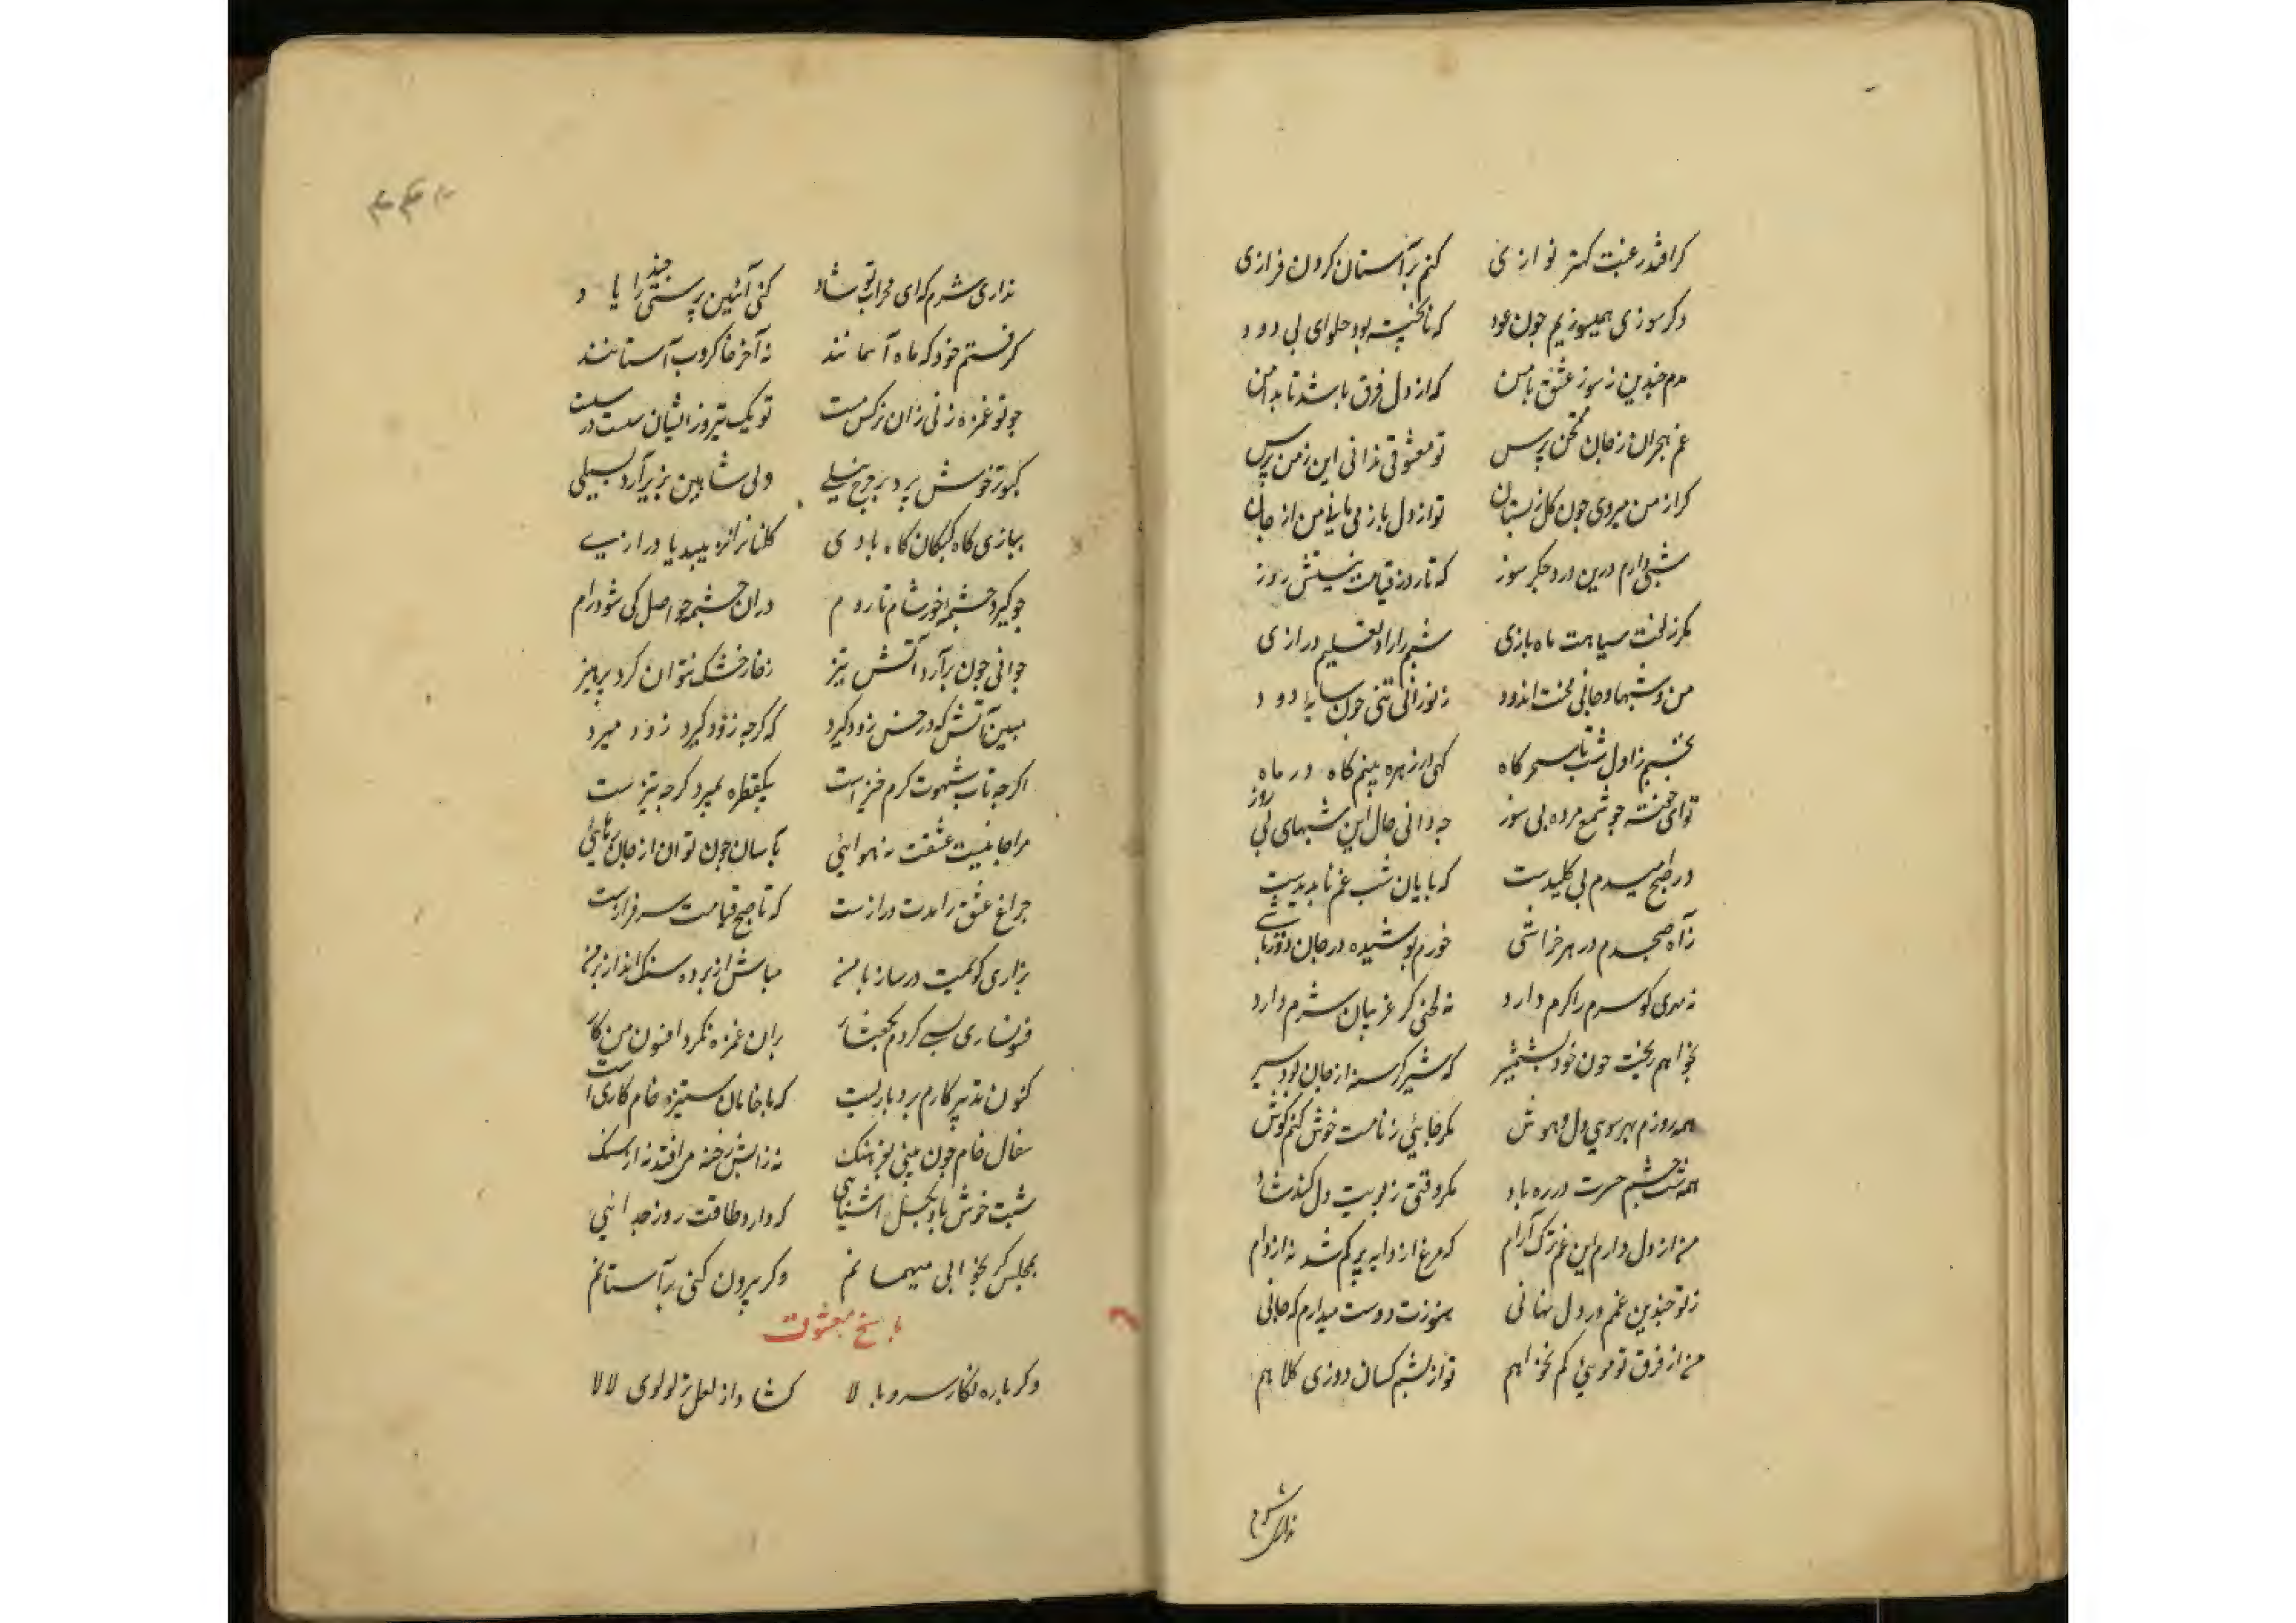 کر افتد رغبت کهتر نوازی کنم بر آستان کردن فرازی
وکر سوزی همیسوزیم چون عود که ناپخته بود حلوای بی دود
مدم چندین ز سوز عشق با من که از دل فرق باشد تا بدامن
غم هجران ز جان ممتحن پرس تو معشوقی ندانی این ز من پرس
کر از من میروی چون کل ز بستان تو از دل باز می مانی من از جان
شبی دارم درین درد جکر سوز که تا روز قیامت نیستش روز
مکر زلفت سیاهت ماه بازی شبم را داد تعلیم درازی
من و شبها و جانی محنت اندود ز نورانی تنی چون سایه دود
نخسپم ز اول شب تا سحرکاه کهی در زهره بینم کاه در ماه
تو ای خفته چو شمع مرده بی سوز چه دانی حال این شبهای بی روز
در صبح امیدم بی کلیدست که پایان شب غم ناپدیدست
ز آه صبحدم در هر خراشی خورم پوشیده در جان دورباشی
نه مهری کو سرم را کرم دارد نه لختی کز غریبان شرم دارد
بخواهم ریخت خون خود بشمشیر که شیر کرسنه از جان بود سیر
همه روزم بهر سوی دل و هوش مکر جایی ز نامت خوش کنم کوش
همه شب چشم حسرت در ره باد مکر وقتی ز بویت دل کند شاد
من از دل دارم این غم ترک آرام که مرغ از دانه پر کم شد نه از دام
ز تو چندین غم در دل نهانی هنوزت دوست میدارم که جانی
من از فرق تو مویی کم نخواهم تو از پشم کسان دوزی کلاهم
نداری شرم
نداری شرم که ای محراب تو شاد کنی آئین پرستی را چند یاد
کرفتم خود که ماه آسمانند نه آخر خاکروب آستانند
چو تو غمزه زنی زان نرکس مست تو یک تیر و ز ایشان بیست در بیست
کبوتر خوش پرد بر چرخ نیلی ولی شاهین بزیر آرد بسیلی
ببازی کاه کبکان کاه بادی کلنانرا نزیبید پا درازی
چو کیرد چشمه خور شام تا روم دران چشمه حواصل کی شود رام
جوانی چون برآرد آتش تیز ز خار خشک نتوان کرد پرهیز
مبین آتش که در خس زود کیرد که کرچه زود کیرد زود میرد
اکرچه تاب شهوت کرم خیزست بیکقطره بمیرد کرچه تیزست
مرا جانیست عشقت نه هوایی بآسان چون توان از جان رهایی
چراغ عشق را مدت درازست که تا صبح قیامت سرفرازست
بزاری کویمت در ساز با من مباش از پرده سنک انداز بر من
فسونسازی بسی کردم بکفتار بران غمزه نکرد افسون من کار
کنون تدبیر کارم بردباریست که با خامان ستیزه خام کاریست
سفال خام چون بینی بفرهنک نه ز آبش رخنه می افتد نه از سنک
شبت خوش باد بکسل آشنایی که دارد طاقت روز جدایی
بمجلس کر بخوابی میهمانم وکر بیرون کنی بر آستانم
پاسخ معشوق
دکر باره نکار سرو بالا کشاد از لعل تر لولوی لالا